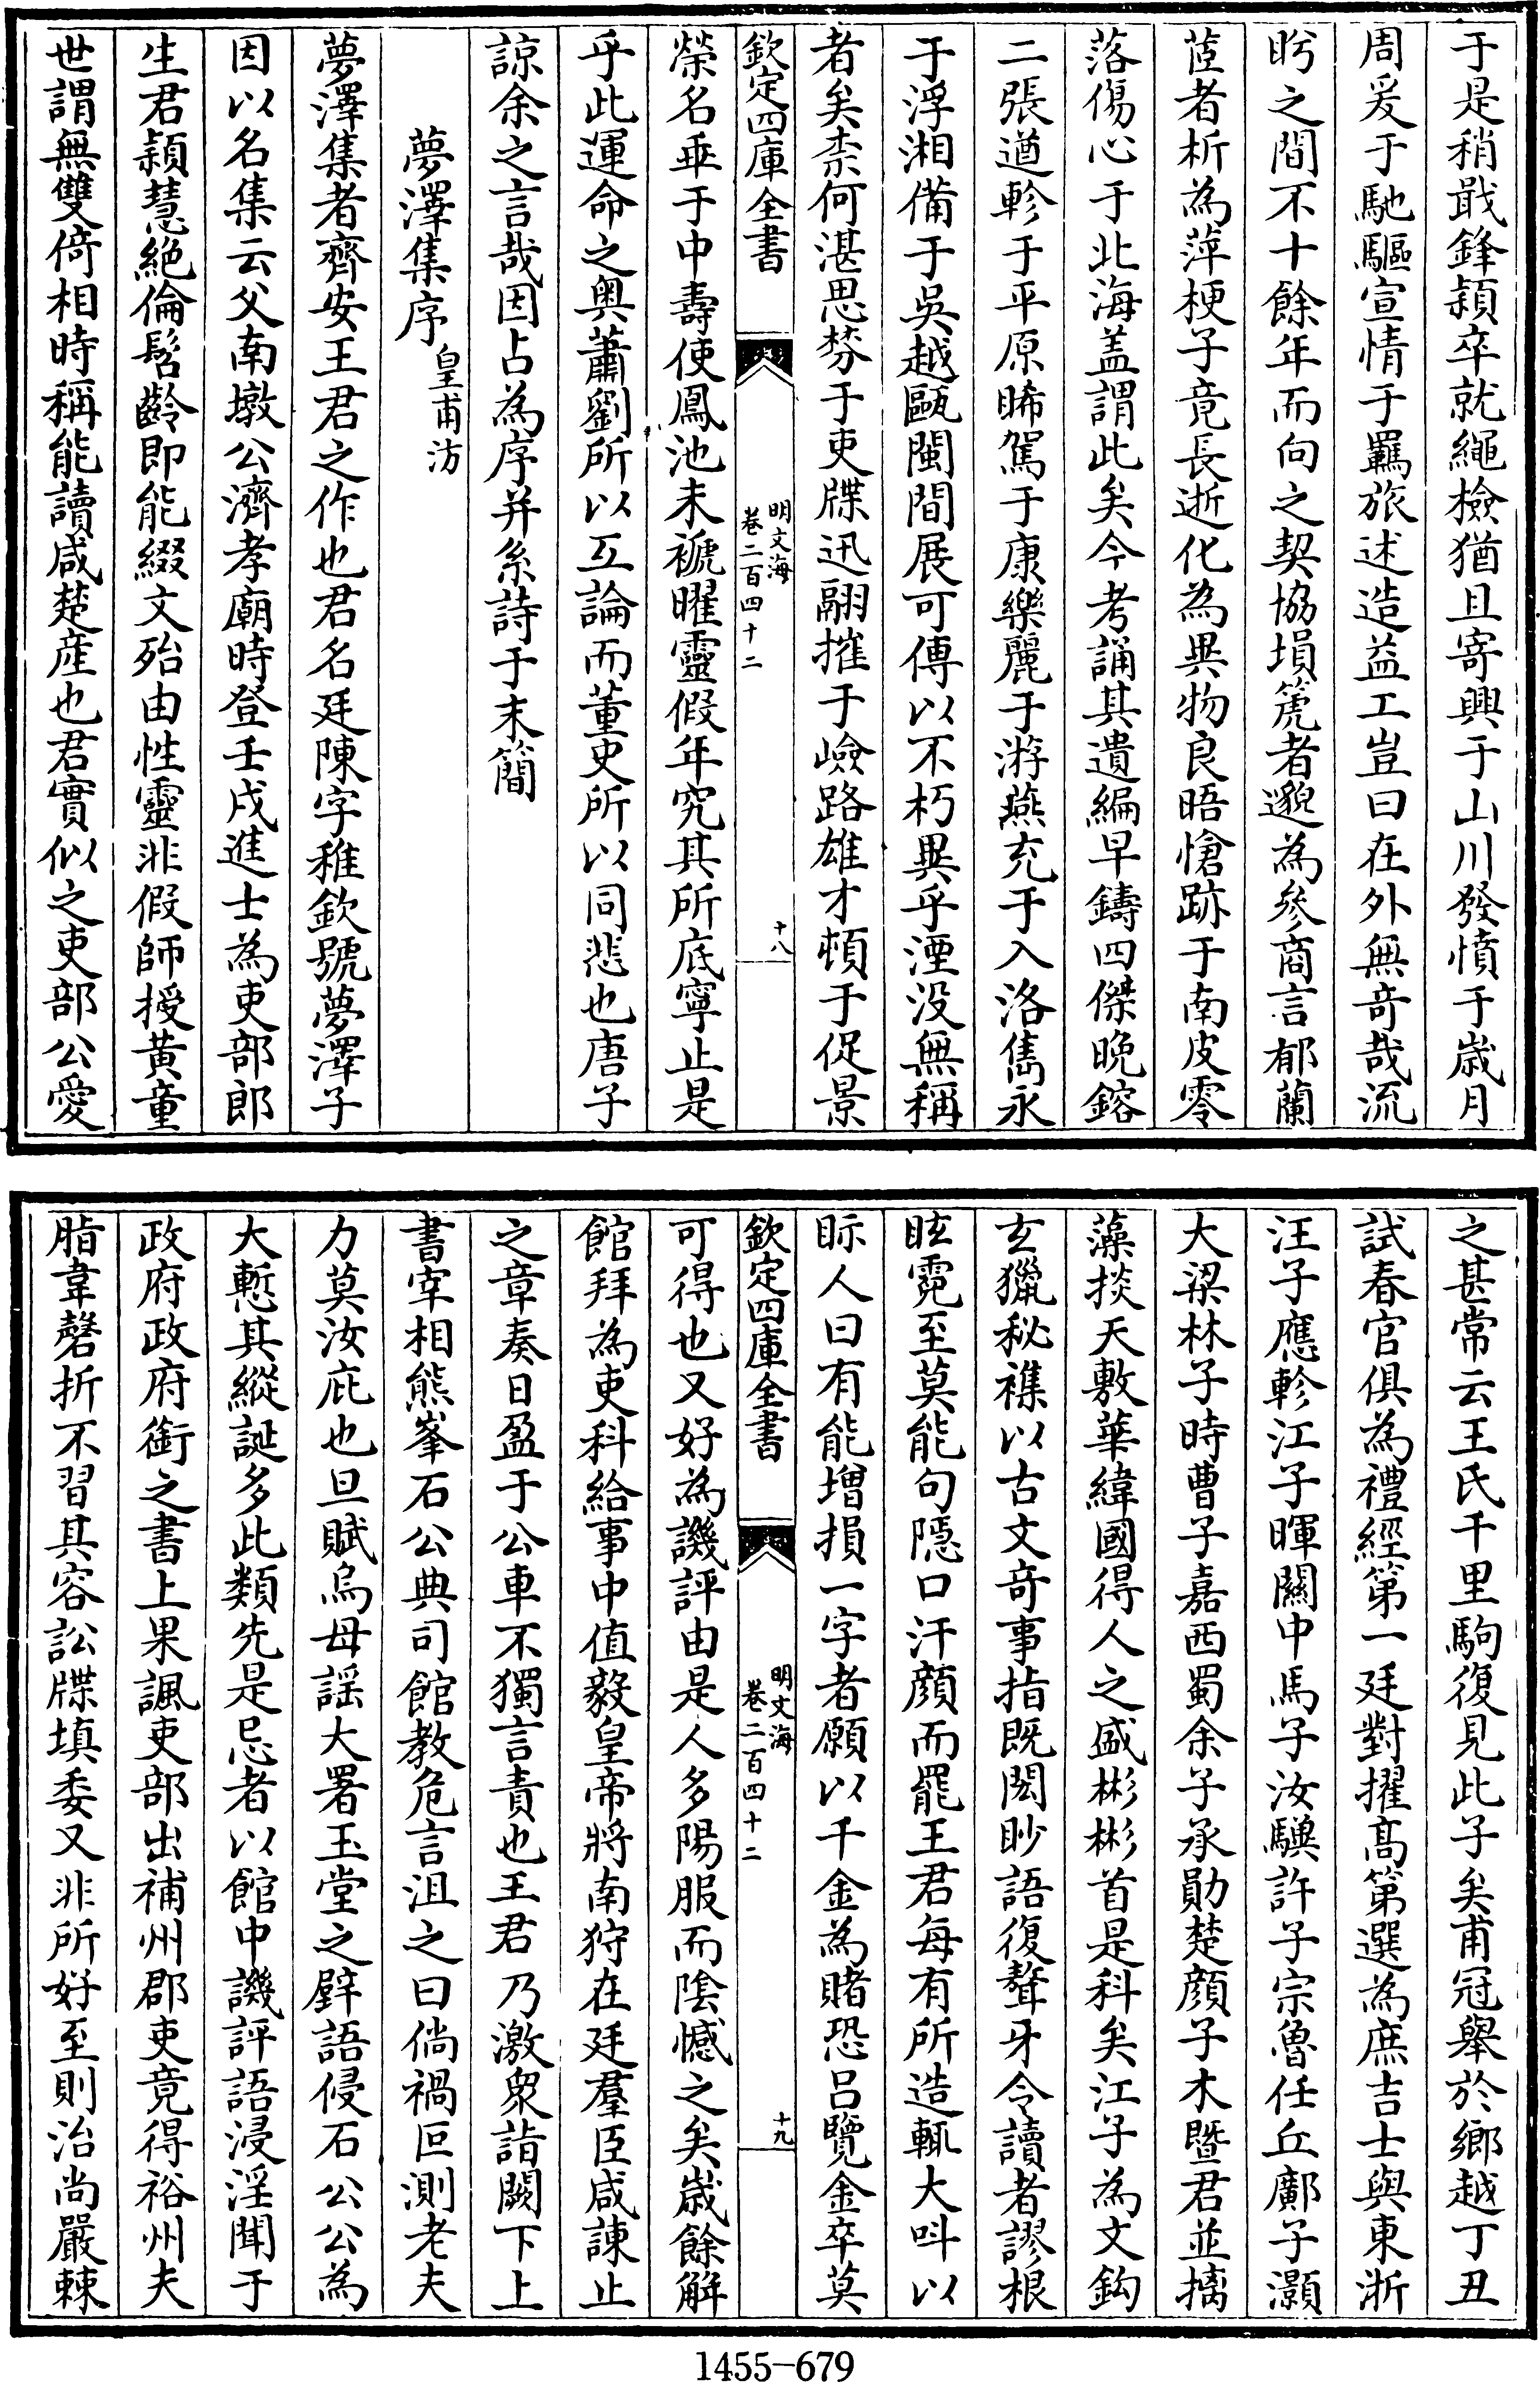 于是稍戢鋒穎卒就繩檢猶且寄興于山川發憤于嵗月
周爰于馳驅宣情于羈旅述造益工豈曰在外無竒哉流
盻之間不十餘年而向之契協塤箎者邈為參商言郁蘭
茝者析為萍梗子竟長逝化為異物良晤愴跡于南皮零
落傷心于北海盖謂此矣今考誦其遺編早鑄四傑晚鎔
二張遒軫于平原晞駕于康樂麗于游燕充于入洛雋永
于浮湘備于吳越甌閩間展可傳以不朽異乎湮没無稱
者矣柰何湛思棼于吏牒迅翮摧于嶮路雄才頓于促景
欽定四庫全書
明文海
卷二百四十二
十八
榮名垂于中壽使鳳池未褫曜靈假年究其所底寧止是
乎此運命之奥蕭劉所以互論而董史所以同悲也唐子
諒余之言哉因占為序并系詩于末簡
夢澤集序皇甫汸
夢澤集者齊安王君之作也君名廷陳字稚欽號夢澤子
因以名集云父南墩公濟孝廟時登壬戌進士為吏部郎
生君穎慧絶倫髫齡即能綴文殆由性靈非假師授黄童
世謂無雙倚相時稱能讀咸楚産也君實似之吏部公愛
之甚常云王氏千里駒復見此子矣甫冠舉於鄉越丁丑
試春官俱為禮經第一廷對擢髙第選為庶吉士與東浙
汪子應軫江子暉闗中馬子汝驥許子宗魯任丘鄺子灝
大梁林子時曹子嘉西蜀余子承勛楚顔子木暨君並摛
藻掞天敷華緯國得人之盛彬彬首是科矣江子為文鈎
玄獵秘襍以古文竒事指既閎眇語復聱牙令讀者謬根
眩霓至莫能句隠口汗顔而罷王君每有所造輒大呌以
眎人曰有能增損一字者願以千金為賭恐吕覽金卒莫
欽定四庫全書
明文海
卷二百四十二
十九
可得也又好為譏評由是人多陽服而隂憾之矣嵗餘解
館拜為吏科給事中值毅皇帝將南狩在廷羣臣咸諫止
之章奏日盈于公車不獨言責也王君乃激衆詣闕下上
書宰相熊峯石公典司館教危言沮之曰倘禍叵測老夫
力莫汝庇也旦賦烏母謡大署玉堂之壁語侵石公公為
大慙其縱誕多此類先是忌者以館中譏評語浸淫聞于
政府政府銜之書上果諷吏部出補州郡吏竟得裕州夫
脂韋磬折不習其容訟牒填委又非所好至則治尚嚴棘
1455-679